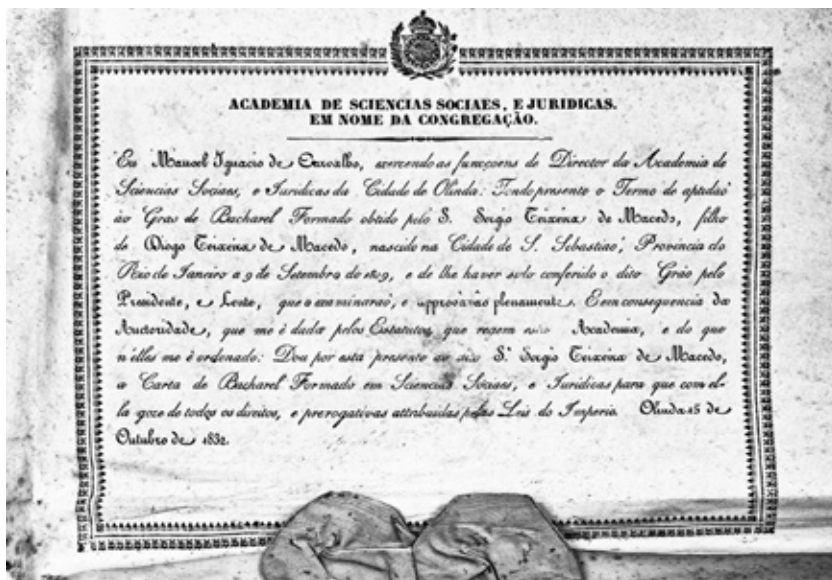 ACADEMIA DE SCIENCIAS SOCIAES, E JURIDICAS.
EM NOME DA CONGREGAÇÃO.
Eu Manoel Ignacio de Carvalho, exercendo as funcçoens de Director da Academia de
Sciencias Sociaes, e Juridicas da Cidade de Olinda: Tendo presente o Termo de aptidaõ
ào Grao de Bacharel Formado obtido pelo S. Sergio Teixeira de Macedo, filho
de Diogo Teixeira de Macedo, nascido na Cidade de S. Sebastiaõ, Provincia do
Rio de Janeiro a 9 de Setembro de 1809, e de lhe haver sido conferido o dito Grão pelo
Presidente, e Lente, que o examinaraõ, e approvaraõ plenamente. E em consequencia da
Auctoridade, que me é dada pelos Estatutos, que regem esta Academia, e do que
n'elles me é ordenado: Dou por esta presente ao S.r Sergio Teixeira de Macedo,
a Carta de Bacharel Formado em Sciencias Sociaes, e Juridicas para que com el-
la goze de todos os direitos, e prerogativas attribuidas pelas Leis do Imperio. Olinda 15 de
Outubro de 1832.